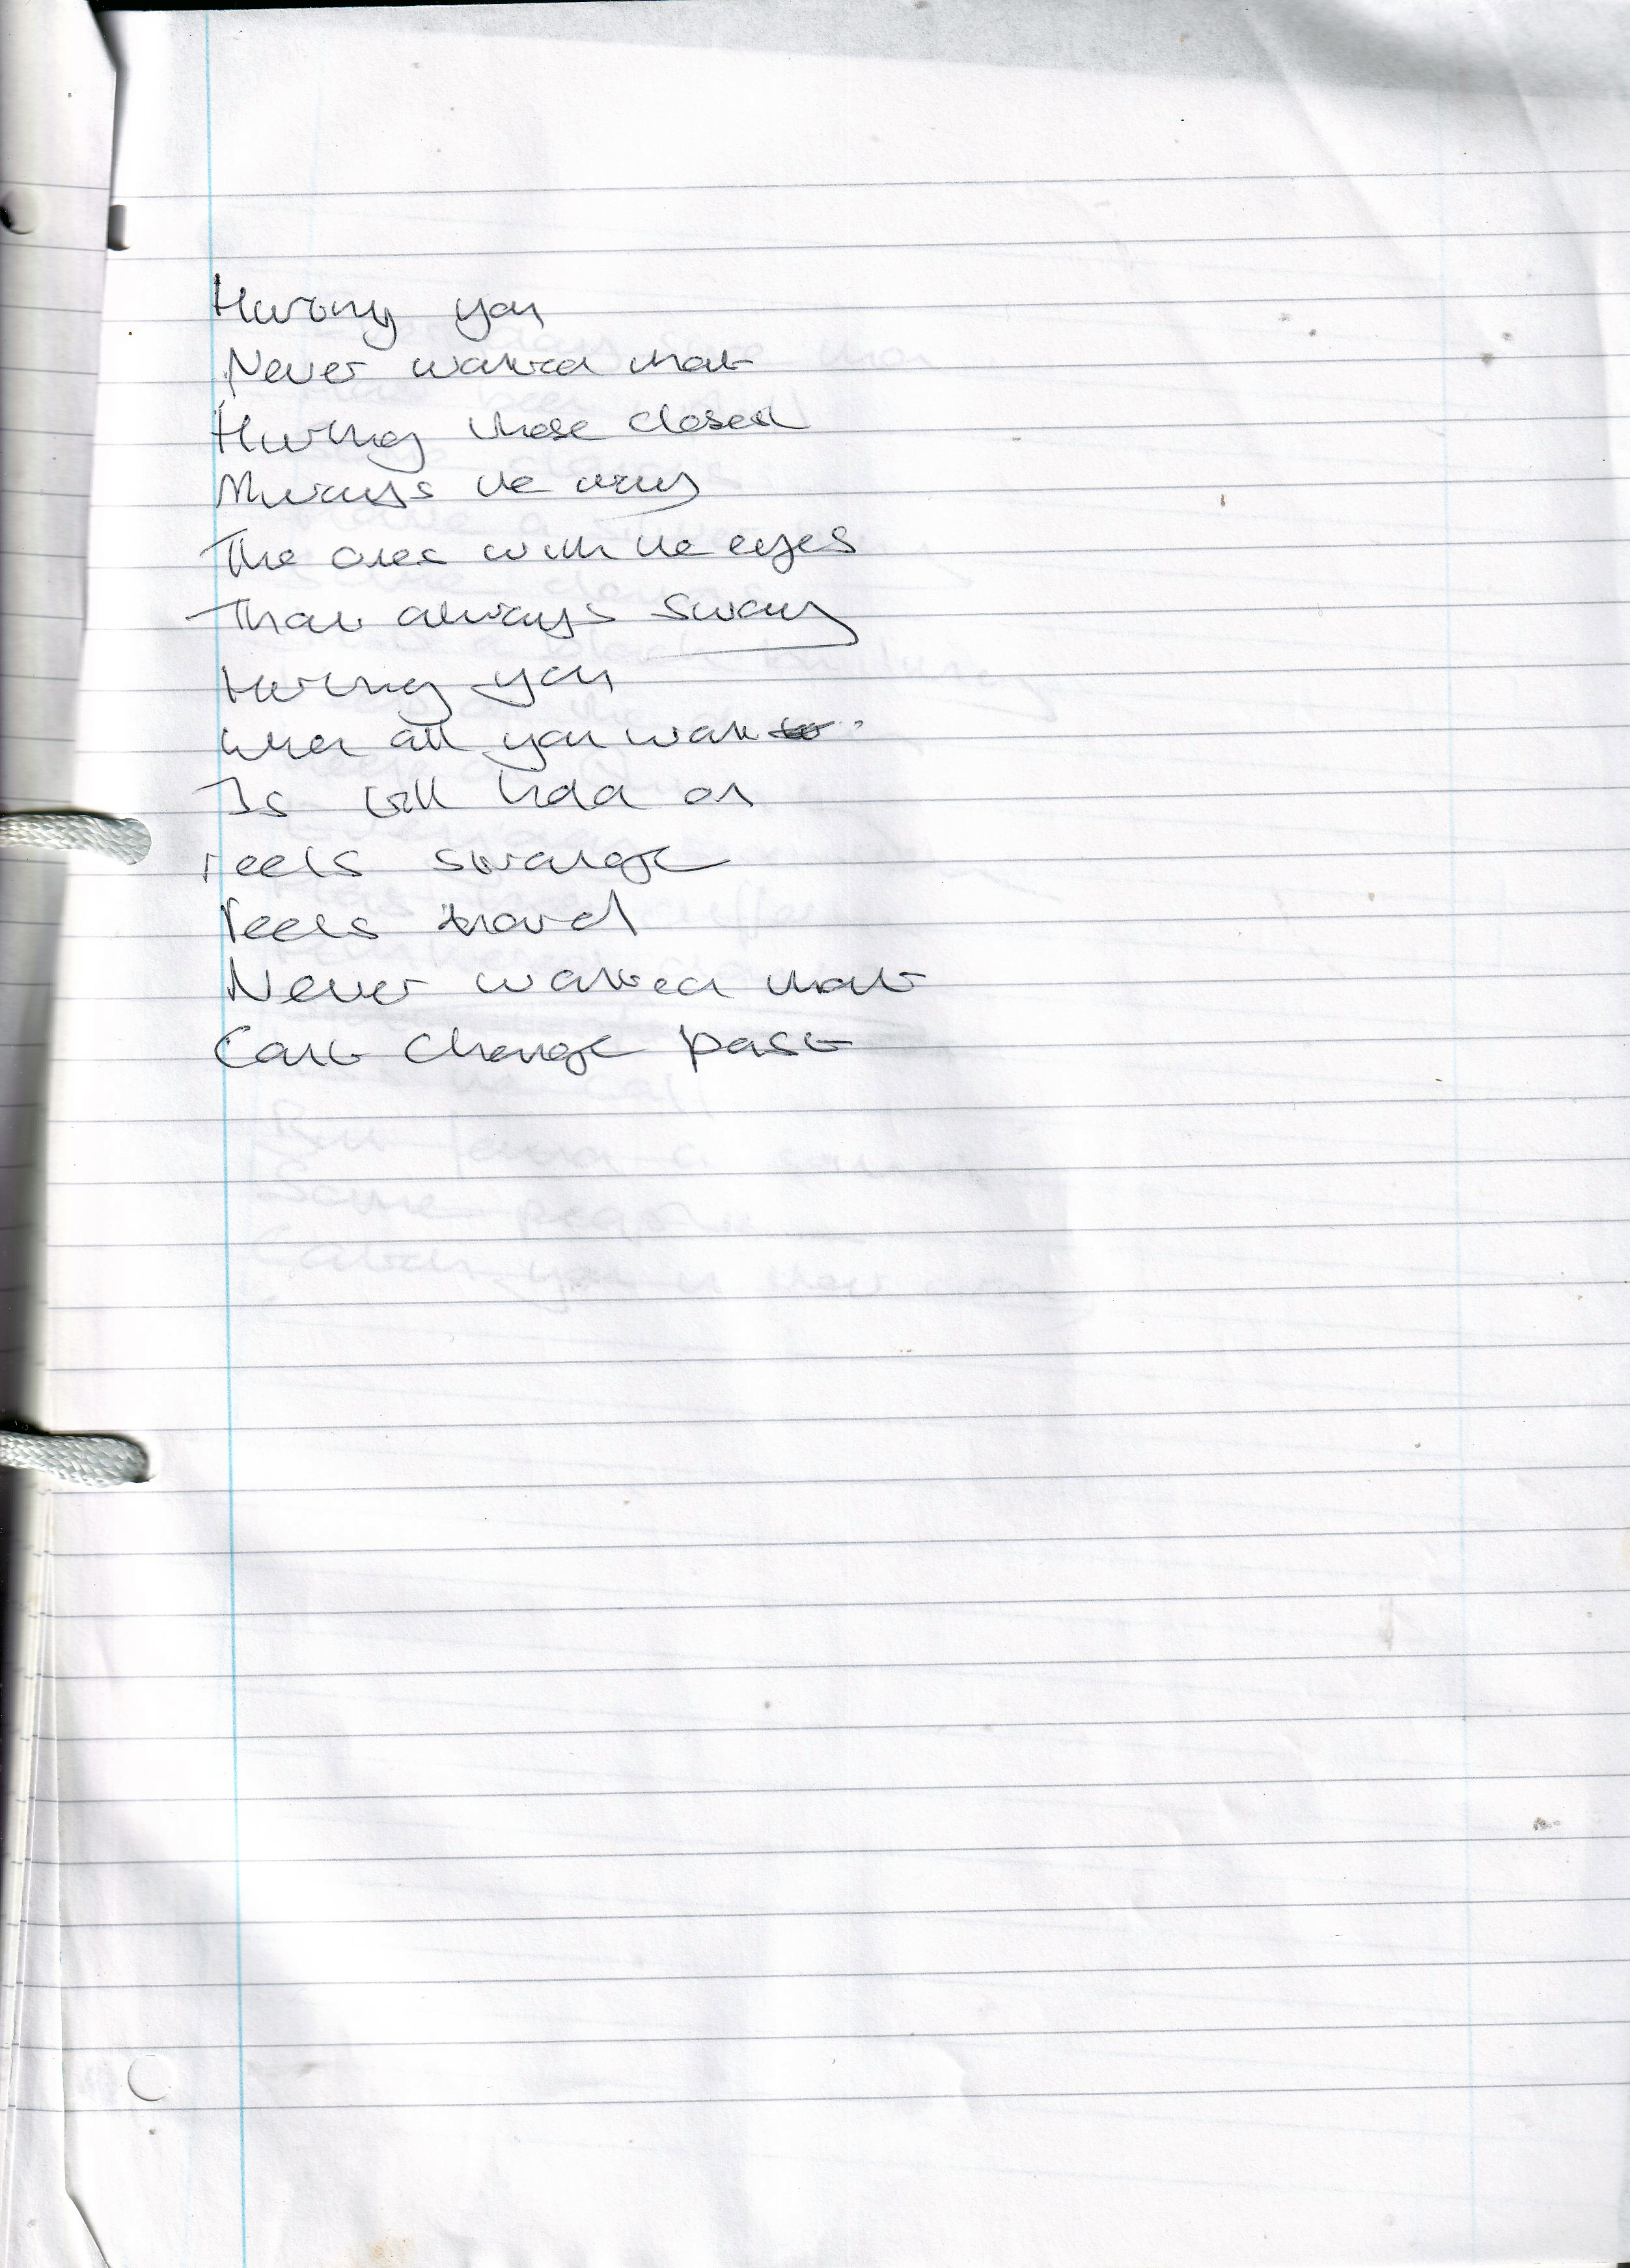 Hurting you
Never wanted that
Hurting those closest
Always the way
The ones with the eyes
That always sway
Hurting you
When all you want
Is hold on
Feels strange
Feels
Never wanted that
Cant change past